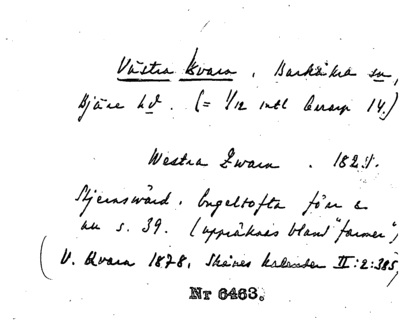 Västra Kvarn, Barkåkra sn,
Bjäre hd. (= 1/12 mtl Berarp 14.)
Westra Qwarn. 1825.
Stjernswärd. Engeltofta förr &
nu s. 39. (uppräknas bland "farmer")
(V. Kvarn 1878, Skånes kalender II:2:385)
Nr 6463.